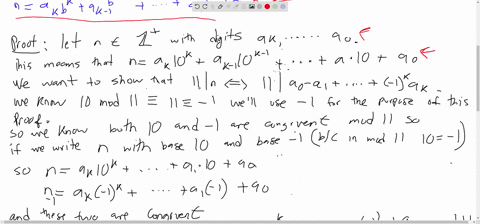 n = aₖbᵏ + aₖ₋₁bᵏ⁻¹ + ...
Proof: let n ∈ ℤ⁺ with digits aₖ, ...... a₀.
This means that n = aₖ10ᵏ + aₖ₋₁10ᵏ⁻¹ + ... + a·10 + a₀
We want to show that 11|n ⟺ 11 | a₀-a₁+....+(-1)ᵏaₖ.
we know 10 mod 11 ≡ 11 ≡ -1 we'll use -1 for the purpose of this
Proof.
So we know both 10 and -1 are congruent mod 11 so
if we write n with base 10 and base -1 (b/c in mod 11 10=-1)
so n = aₖ10ᵏ + ..... + a₁·10 + a₀
n₋₁ = aₖ(-1)ᵏ + ..... + a₁(-1) + a₀
and these two are congruent